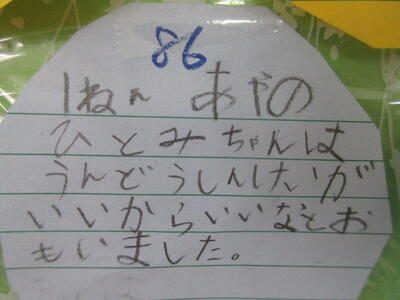 86
1ねん あやの
ひとみちゃんは
うんどうしんけいが
いいからいいなとお
もいました。